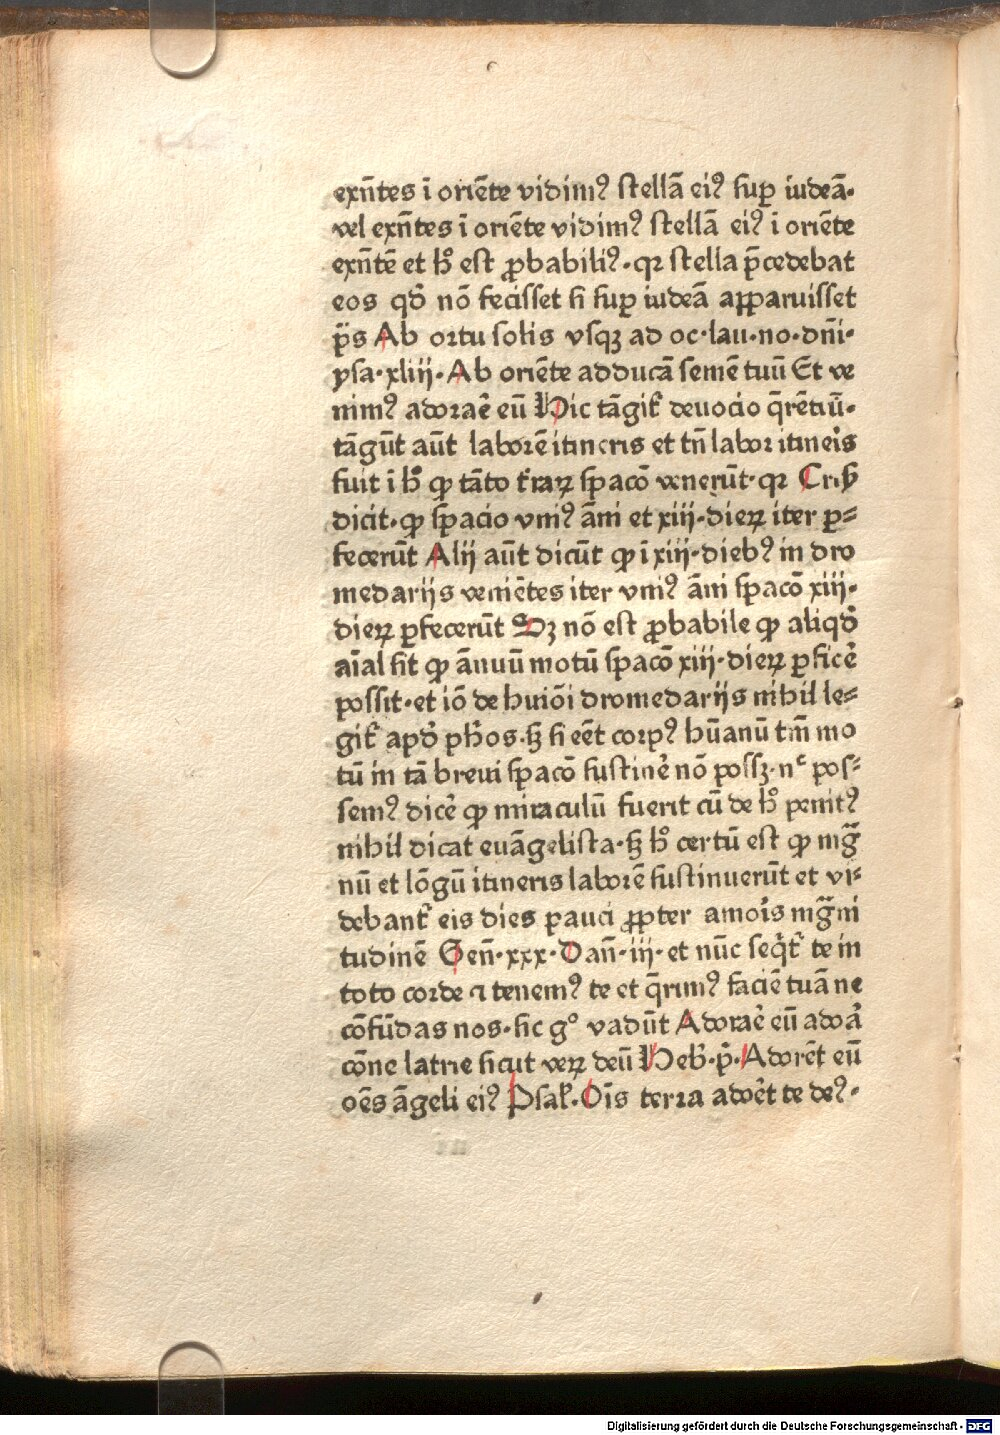 exn̄tes ī oriēte vidimꝰ stellā eiꝰ suꝑ iudeā·
vel exn̄tes ī oriēte vidimꝰ stellā eiꝰ ī oriēte
exn̄tē et hͦ est ꝓbabiliꝰ·qꝛ stella p̄cedebat
eos qd̕ nō fecisset si suꝑ iudeā aꝑparuisset
p̄s Ab ortu solis vsqꝫ ad oc·lau·no·dn̄i·
ysa·xliij·Ab oriēte adducā semē tuū Et ve
nimꝰ adorar̄e eū Hic tāgit᷑ deuocio q̄rētiū·
tāgūt aūt laborē itineris et tn̄ labor itineis̄
fuit ī hͦ ꝙ tāto t᷑raꝝ spacō venerūt·qꝛ Cris̄
dicit·ꝙ spacio vniꝰ āni et xiij·dieꝝ iter ꝑ⸗
fecerūt Alij aūt dicūt ꝙ ī xiij·diebꝰ in dro
medarijs veniētes iter vniꝰ āni spacō xiij·
dieꝝ ꝑfecerūt Sꝫ nō est ꝓbabile ꝙ aliqd̕
aīal sit ꝙ ānuū motū spacō xiij·dieꝝ ꝑficē
possit·et iō de huiōi dromedarijs nihil le⸗
git᷑ apd̕ ph̄os·sꝫ si eēt corpꝰ hūanū tm̄ mo
tū in tā breui spacō sustinē nō possꝫ·nᶜ pos⸗
semꝰ dicē ꝙ miraculū fuerit cū de hͦ penitꝰ
nihil dicat euāgelista·sꝫ hͦ certū est ꝙ mḡ
nū et lōgū itineris laborē sustinuerūt et vi⸗
debant᷑ eis dies pauci ꝓpter amois̄ mḡni
tudinē Gen̄·xxx·Dan̄·iij·et nūc seq̄t᷑ te in
toto corde ⁊ tenemꝰ te et q̄rimꝰ faciē tuā ne
cōfūdas nos·sic gͦ vadūt Adorāe eū adoā
cōne latrie sicut veꝝ deū Heb̄·p̄·Adorēt eū
oēs āgeli eiꝰ Psal̄·Oīs terra adoēt te deꝰ·
Digitalisierung gefördert durch die Deutsche Forschungsgemeinschaft - DFG